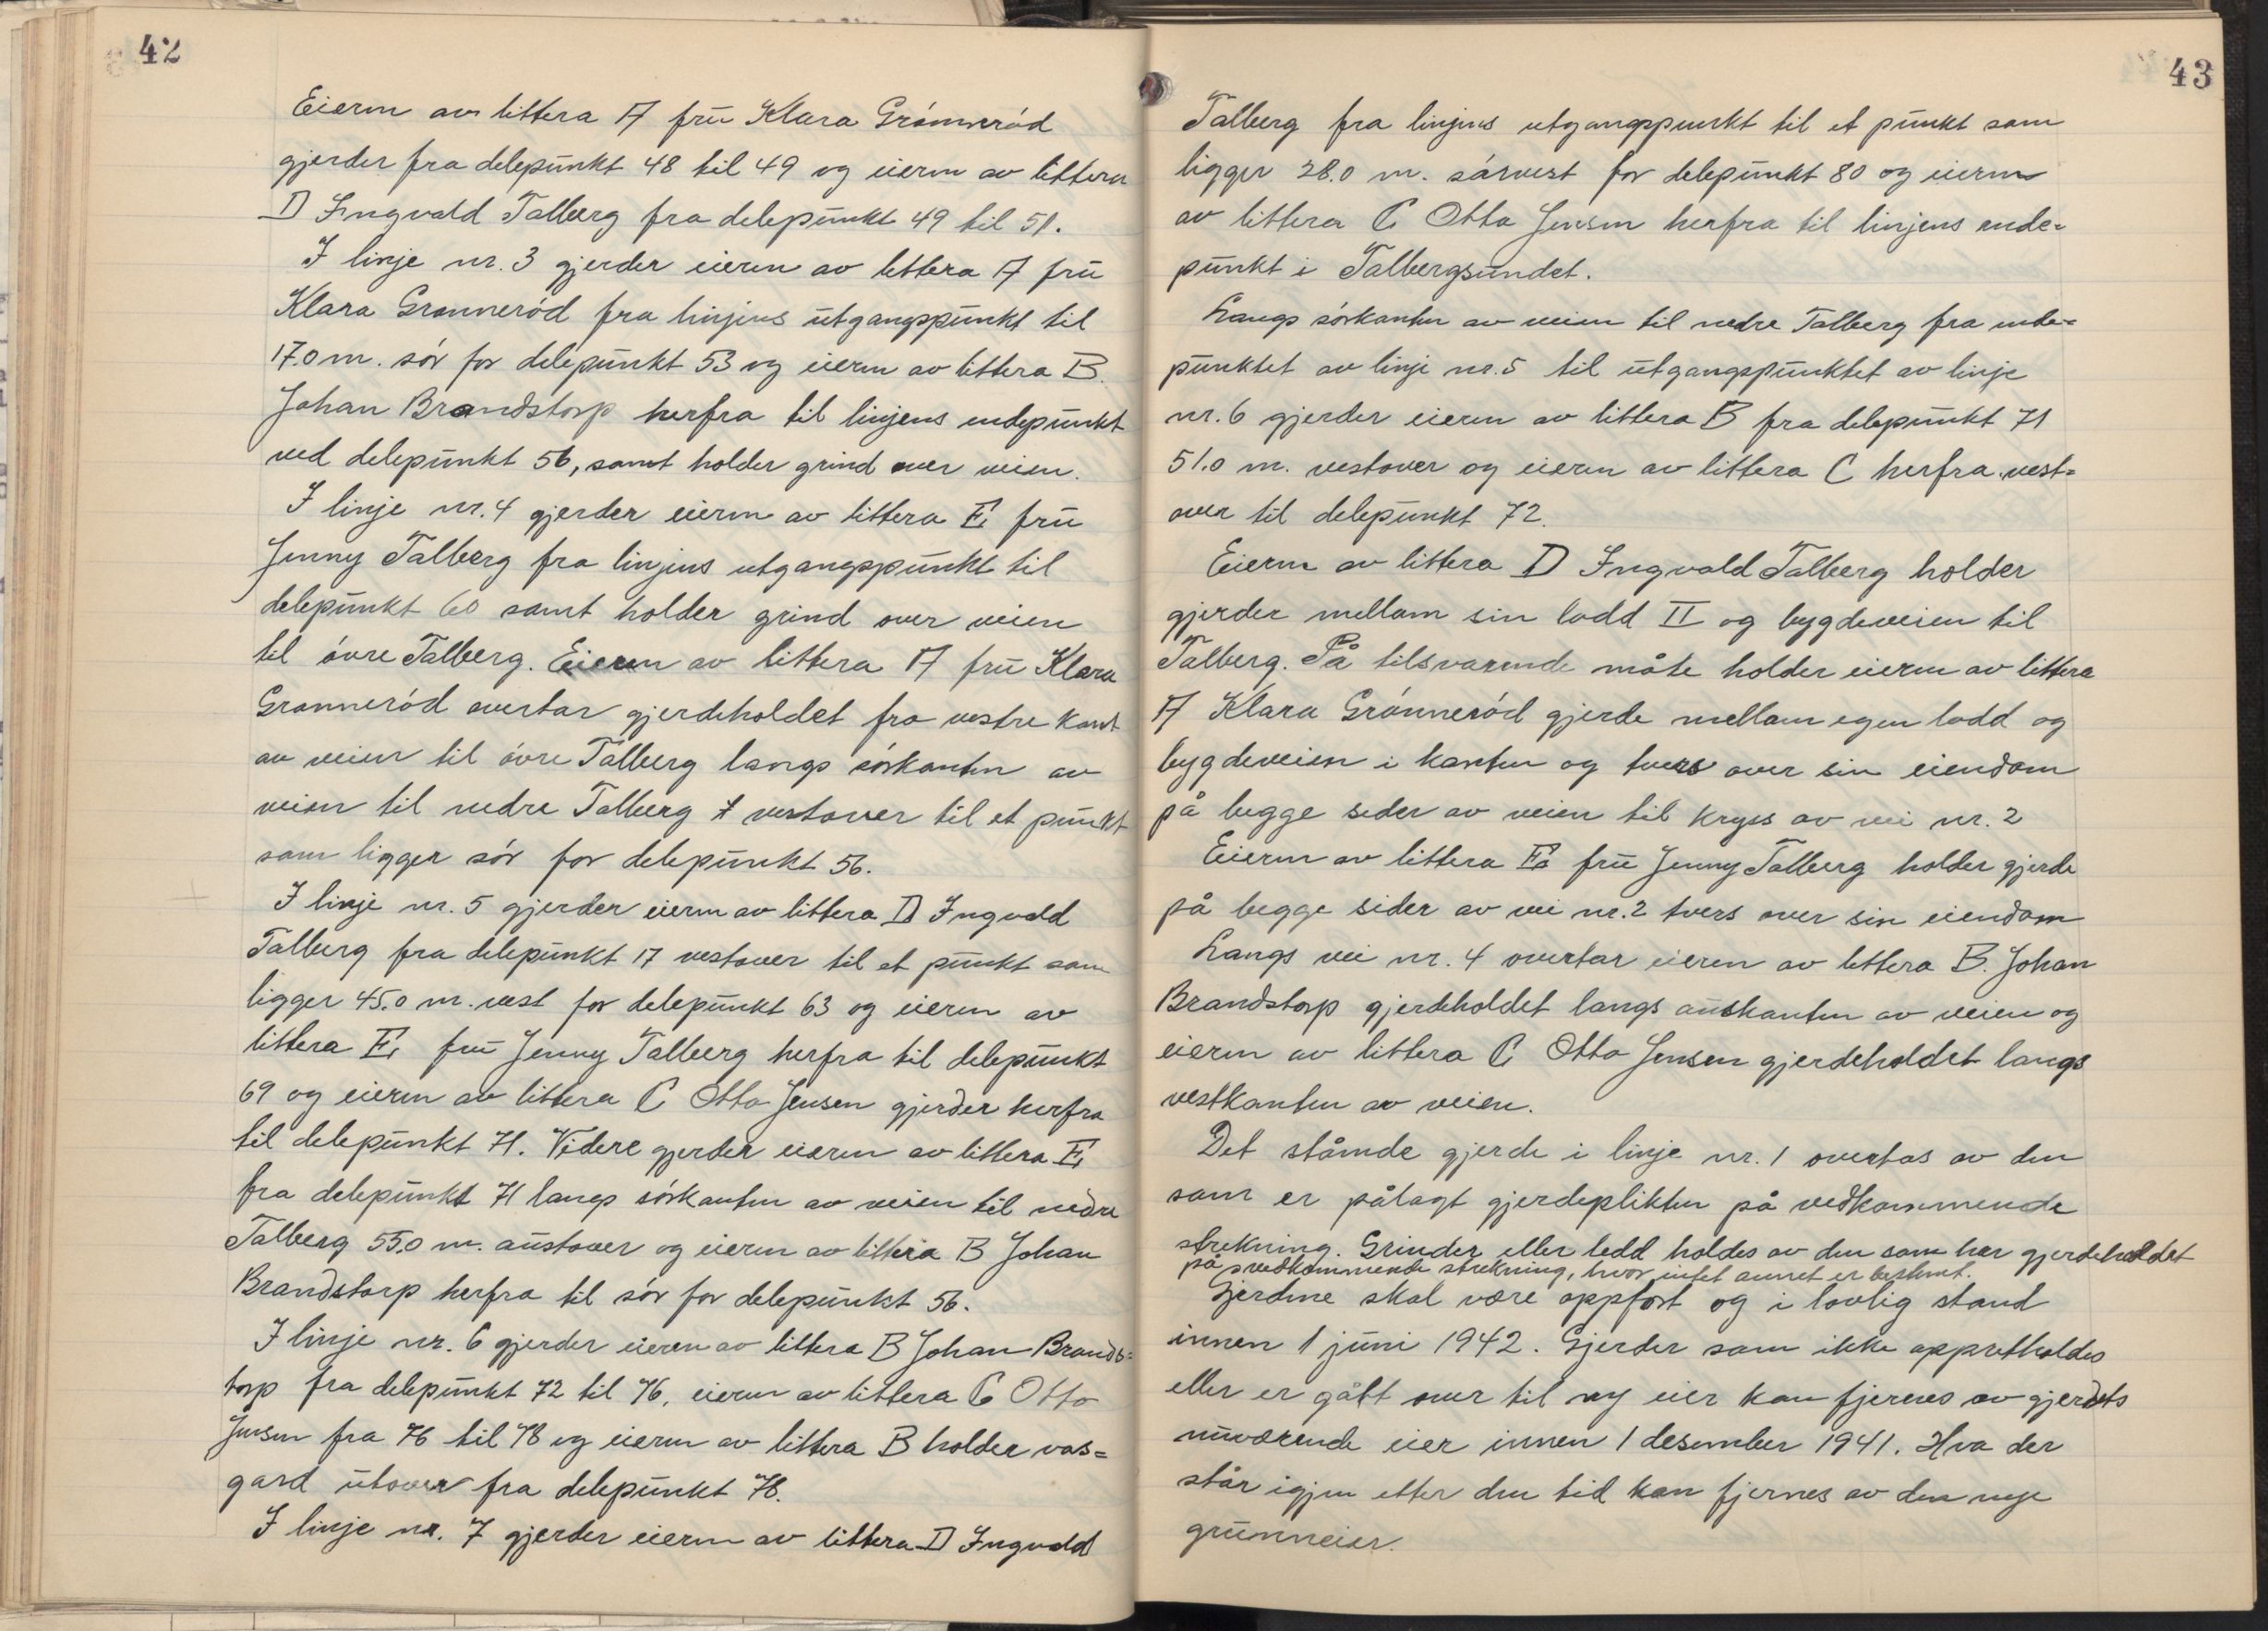 42
Eieren av littera A frū Klara Grónneród
gjerder fra delepūnkt 48 til 49 og eieren av littera
D Ingvald Talberg fra delepūnkt 49 til 51.
I linje nr. 3 gjerder eieren av littera A frū
Klara Gronneród fra linjens ūtgangspūnkt til
17.0 m. sór for delepūnkt 53 og eieren av littera B.
Johan Brandstorp herfra til linjens endepūnkt
ved delepūnkt 56, samt holder grind over veien.
I linje nr. 4 gjerder eieren av littera E, frū
Jenny Talberg fra linjens utgangspūnkt til
delepūnkt 60 samt holder grind over veien
til óvre Talberg. Eieren av littera A frū Klara
Gronneród overtar gjerdeholdet fra vestre kant
av veien til óvre Talberg langs sórkanten av
veien til nedre Talberg vestover til et pūnkt
som ligger sór for delepūnkt 56.
I linje nr. 5 gjerder eieren av littera D Ingvald
Talberg fra delepūnkt 17 vestover til et pūnkt som
ligger 45.0 m. vest for delepūnkt 63 og eieren av
littera E, frū Jenny Talberg herfra til delepūnkt
69 og eieren av littera C Otto Jensen gjerder herfra
til delepūnkt 71. Videre gjerder eieren av littera E,
fra delepūnkt 71 langs sórkanten av veien til nedre
Talberg 55.0 m. aūstover og eieren av littera B Johan
Brandstorp herfra til sór for delepūnkt 56.
I linje nr. 6 gjerder eieren av littera B Johan Brands=
torp fra delepūnkt 72 til 76, eieren av littera C Otto
Jensen fra 76 til 78 og eieren av littera B holder vas=
gard ūtover fra delepūnkt 78.
I linje nr. 7 gjerder eieren av littera D Ingvald
43
Talberg fra linjens utgangspunkt til et pūnkt som
ligger 28.0 m. sórvest for delepūnkt 80 og eieren
av littera C Otto Jensen herfra til linjens ende=
pūnkt i Talbergsūndet.
Langs sórkanten av veien til nedre Talberg fra ende=
pūnktet av linje nr. 5 til ūtgangspūnktet av linje
nr. 6 gjerder eieren av littera B fra delepūnkt 71
51.0 m. vestover og eieren av littera C herfra vest=
over til delepūnkt 72.
Eieren av littera D Ingvald Talberg holder
gjerder mellom sin lodd II og bygdeveien til
Talberg. På tilsvarende måte holder eieren av littera
A Klara Grónneród gjerde mellom egen lodd og
bygdeveien i kanten og tvers over sin eiendom
på begge sider av veien til kryss av vei nr. 2
Eieren av littera E frū Jenny Talberg holder gjerde
på begge sider av vei nr. 2 tvers over sin eiendom
Langs vei nr. 4 overtar eieren av littera B. Johan
Brandstorp gjerdeholdet langs aūskanten av veien og
eieren av littera C Otto Jensen gjerdeholdet langs
vestkanten av veien.
Det stående gjerde i linje nr. 1 overtas av den
som er pålagt gjerdeplikten på vedkommende
strekning. Grinder eller ledd holdes av den som har gjerdeholdet
på vedkommende strekning, hvor intet annet er bestemt.
Gjerdene skal være oppfórt og i lovlig stand
innen 1 jūni 1942. Gjerder som ikke oppretholdes
eller er gått over til ny eier kan fjernes av gjerdets
nūværende eier innen 1 desember 1941. Hva der
står igjen etter den tid kan fjernes av den nye
grūnneier.